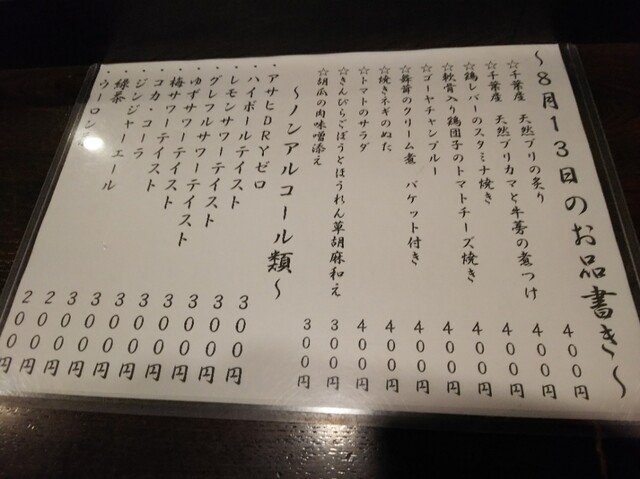 ～8月13日のお品書き～
☆千葉産 天然ブリの炙り 400円
☆千葉産 天然ブリカマと牛蒡の煮つけ 400円
☆鶏レバーのスタミナ焼き 400円
☆軟骨入り鶏団子のトマトチーズ焼き 400円
☆ゴーヤチャンプルー 400円
☆舞茸のクリーム煮 バケット付き 400円
☆焼きネギのぬた 400円
☆トマトのサラダ 400円
☆きんぴらごぼうとほうれん草胡麻和え 300円
☆胡瓜の肉味噌添え 300円
～ノンアルコール類～
・アサヒDRYゼロ 300円
・ハイボールテイスト 300円
・レモンサワーテイスト 300円
・グレフルサワーテイスト 300円
・ゆずサワーテイスト 300円
・梅サワーテイスト 300円
・コカ・コーラ 300円
・ジンジャーエール 300円
・緑茶 200円
・ウーロン 200円